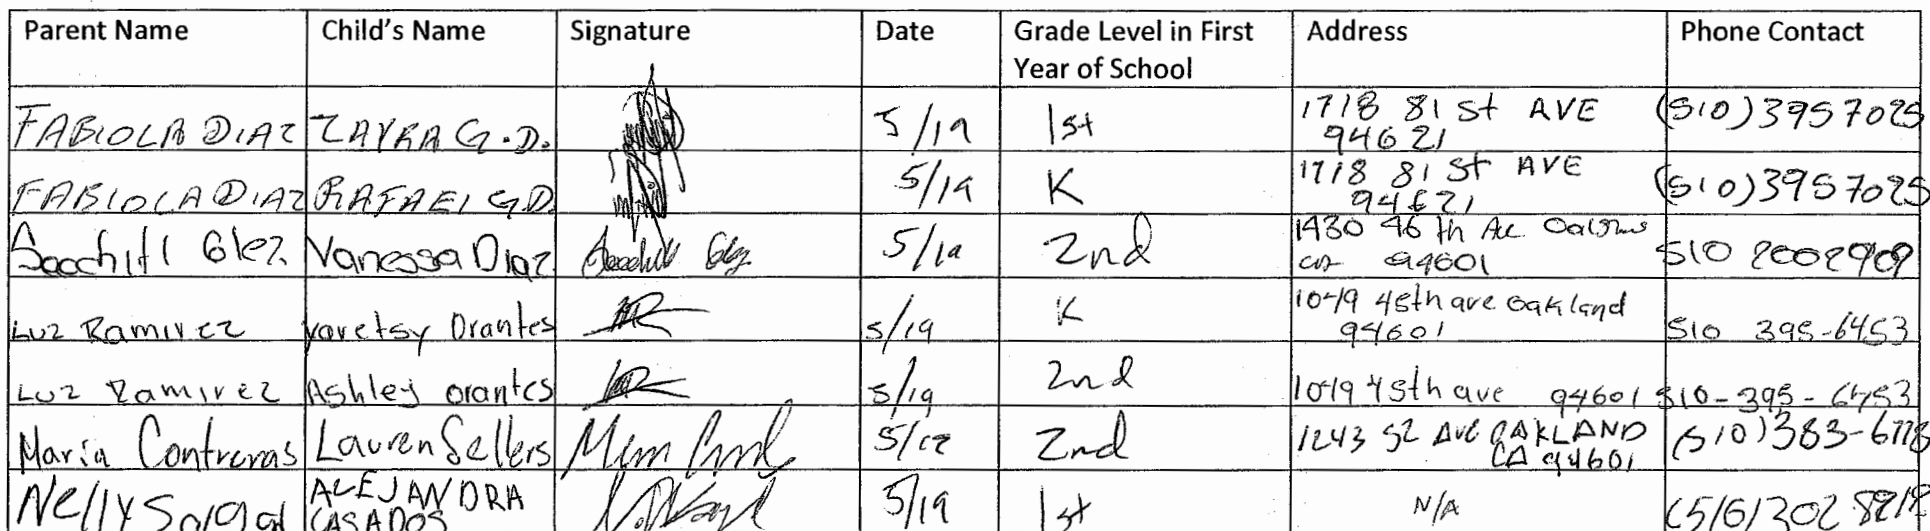 Parent Name Child's Name Signature Date Grade Level in First Year of School Address Phone Contact
FABIOLA DIAZ ZAYRA G.D. 5/19 1st 1718 81 St AVE 94621 (510)3957025
FABIOLA DIAZ RAFAEL G.D. 5/19 K 1718 81 St AVE 94621 (510)3957025
Socchitl Glez Vanessa Diaz 5/19 2nd 1430 46 th 94601 510 2002909
Luz Ramirez Yaretsy Orantes 5/19 K 1049 45th ave Oakland 94601 510 395-6453
Luz Ramirez Ashley orantes 5/19 2nd 1049 45th ave 94601 510-395-6453
Maria Contreras Lauren Sellers 2nd 1243 52 Ave OAKLAND CA 94601 (510)383-6778
Nelly ALEJANDRA CASADOS 5/19 1st N/A